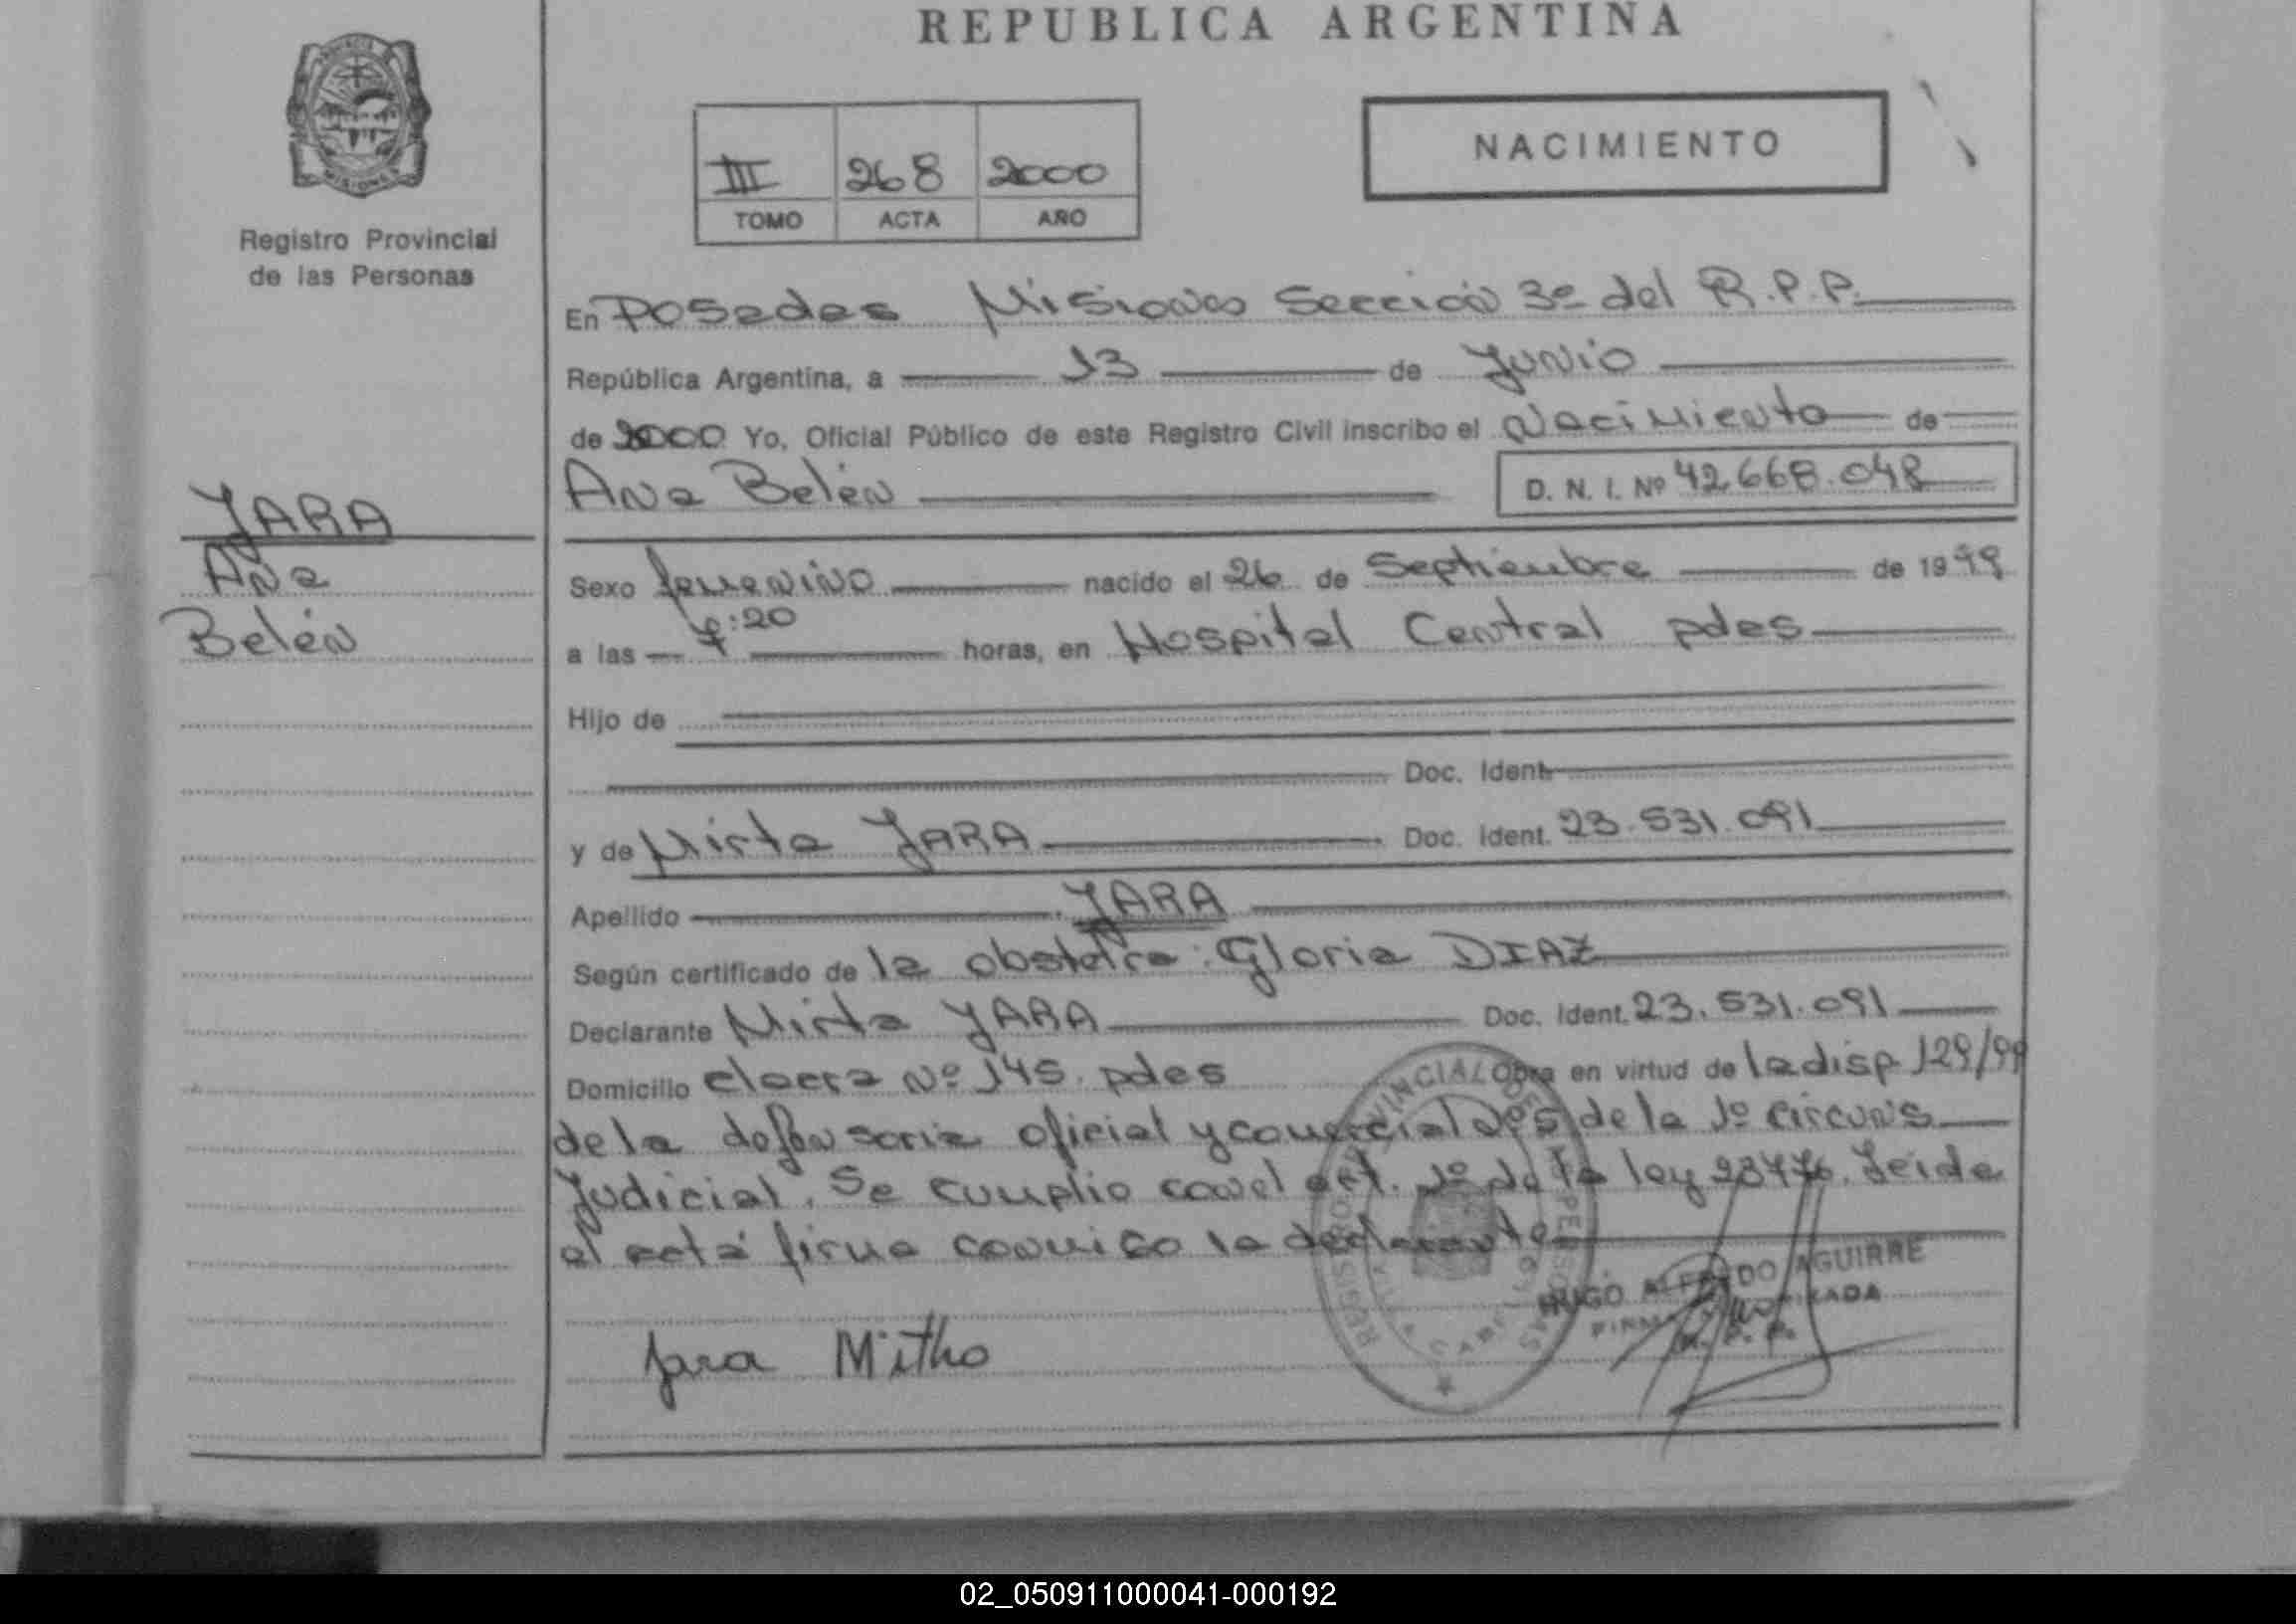 REPUBLICA ARGENTINA
PROVINCIA
MISIONES
Registro Provincial
de las Personas
III 268 2000
TOMO ACTA AÑO
NACIMIENTO
En Posadas Misiones Sección 3º del R.P.P.
República Argentina, a 13 de Junio
de 2000 Yo, Oficial Público de este Registro Civil inscribo el Nacimiento de
Ana Belén D. N. I. Nº 42.668.048
JARA
Ana
Belén
Sexo femenino nacido el 26 de Septiembre de 1999
a las :20 horas, en Hospital Central pdas
Hijo de
Doc. Ident.
y de Mirta JARA Doc. Ident. 23.531.091
Apellido JARA
Según certificado de la obstetra: Gloria DIAZ
Declarante Mirta JARA Doc. Ident. 23.531.091
Domicilio chacra Nº 145. pdas Obra en virtud de la disp 129/99
de la defensoria oficial y comercial Nº5 de la 1º circuns
Judicial. Se cumplio con el art. 1º de la ley 23776. Leida
el acta firma conmigo la declarante
HUGO ALFREDO AGUIRRE
FIRMA AUTORIZADA
R. P. P.
REGISTRO PROVINCIAL DE PERSONAS
Jara Mitho
02_050911000041-000192